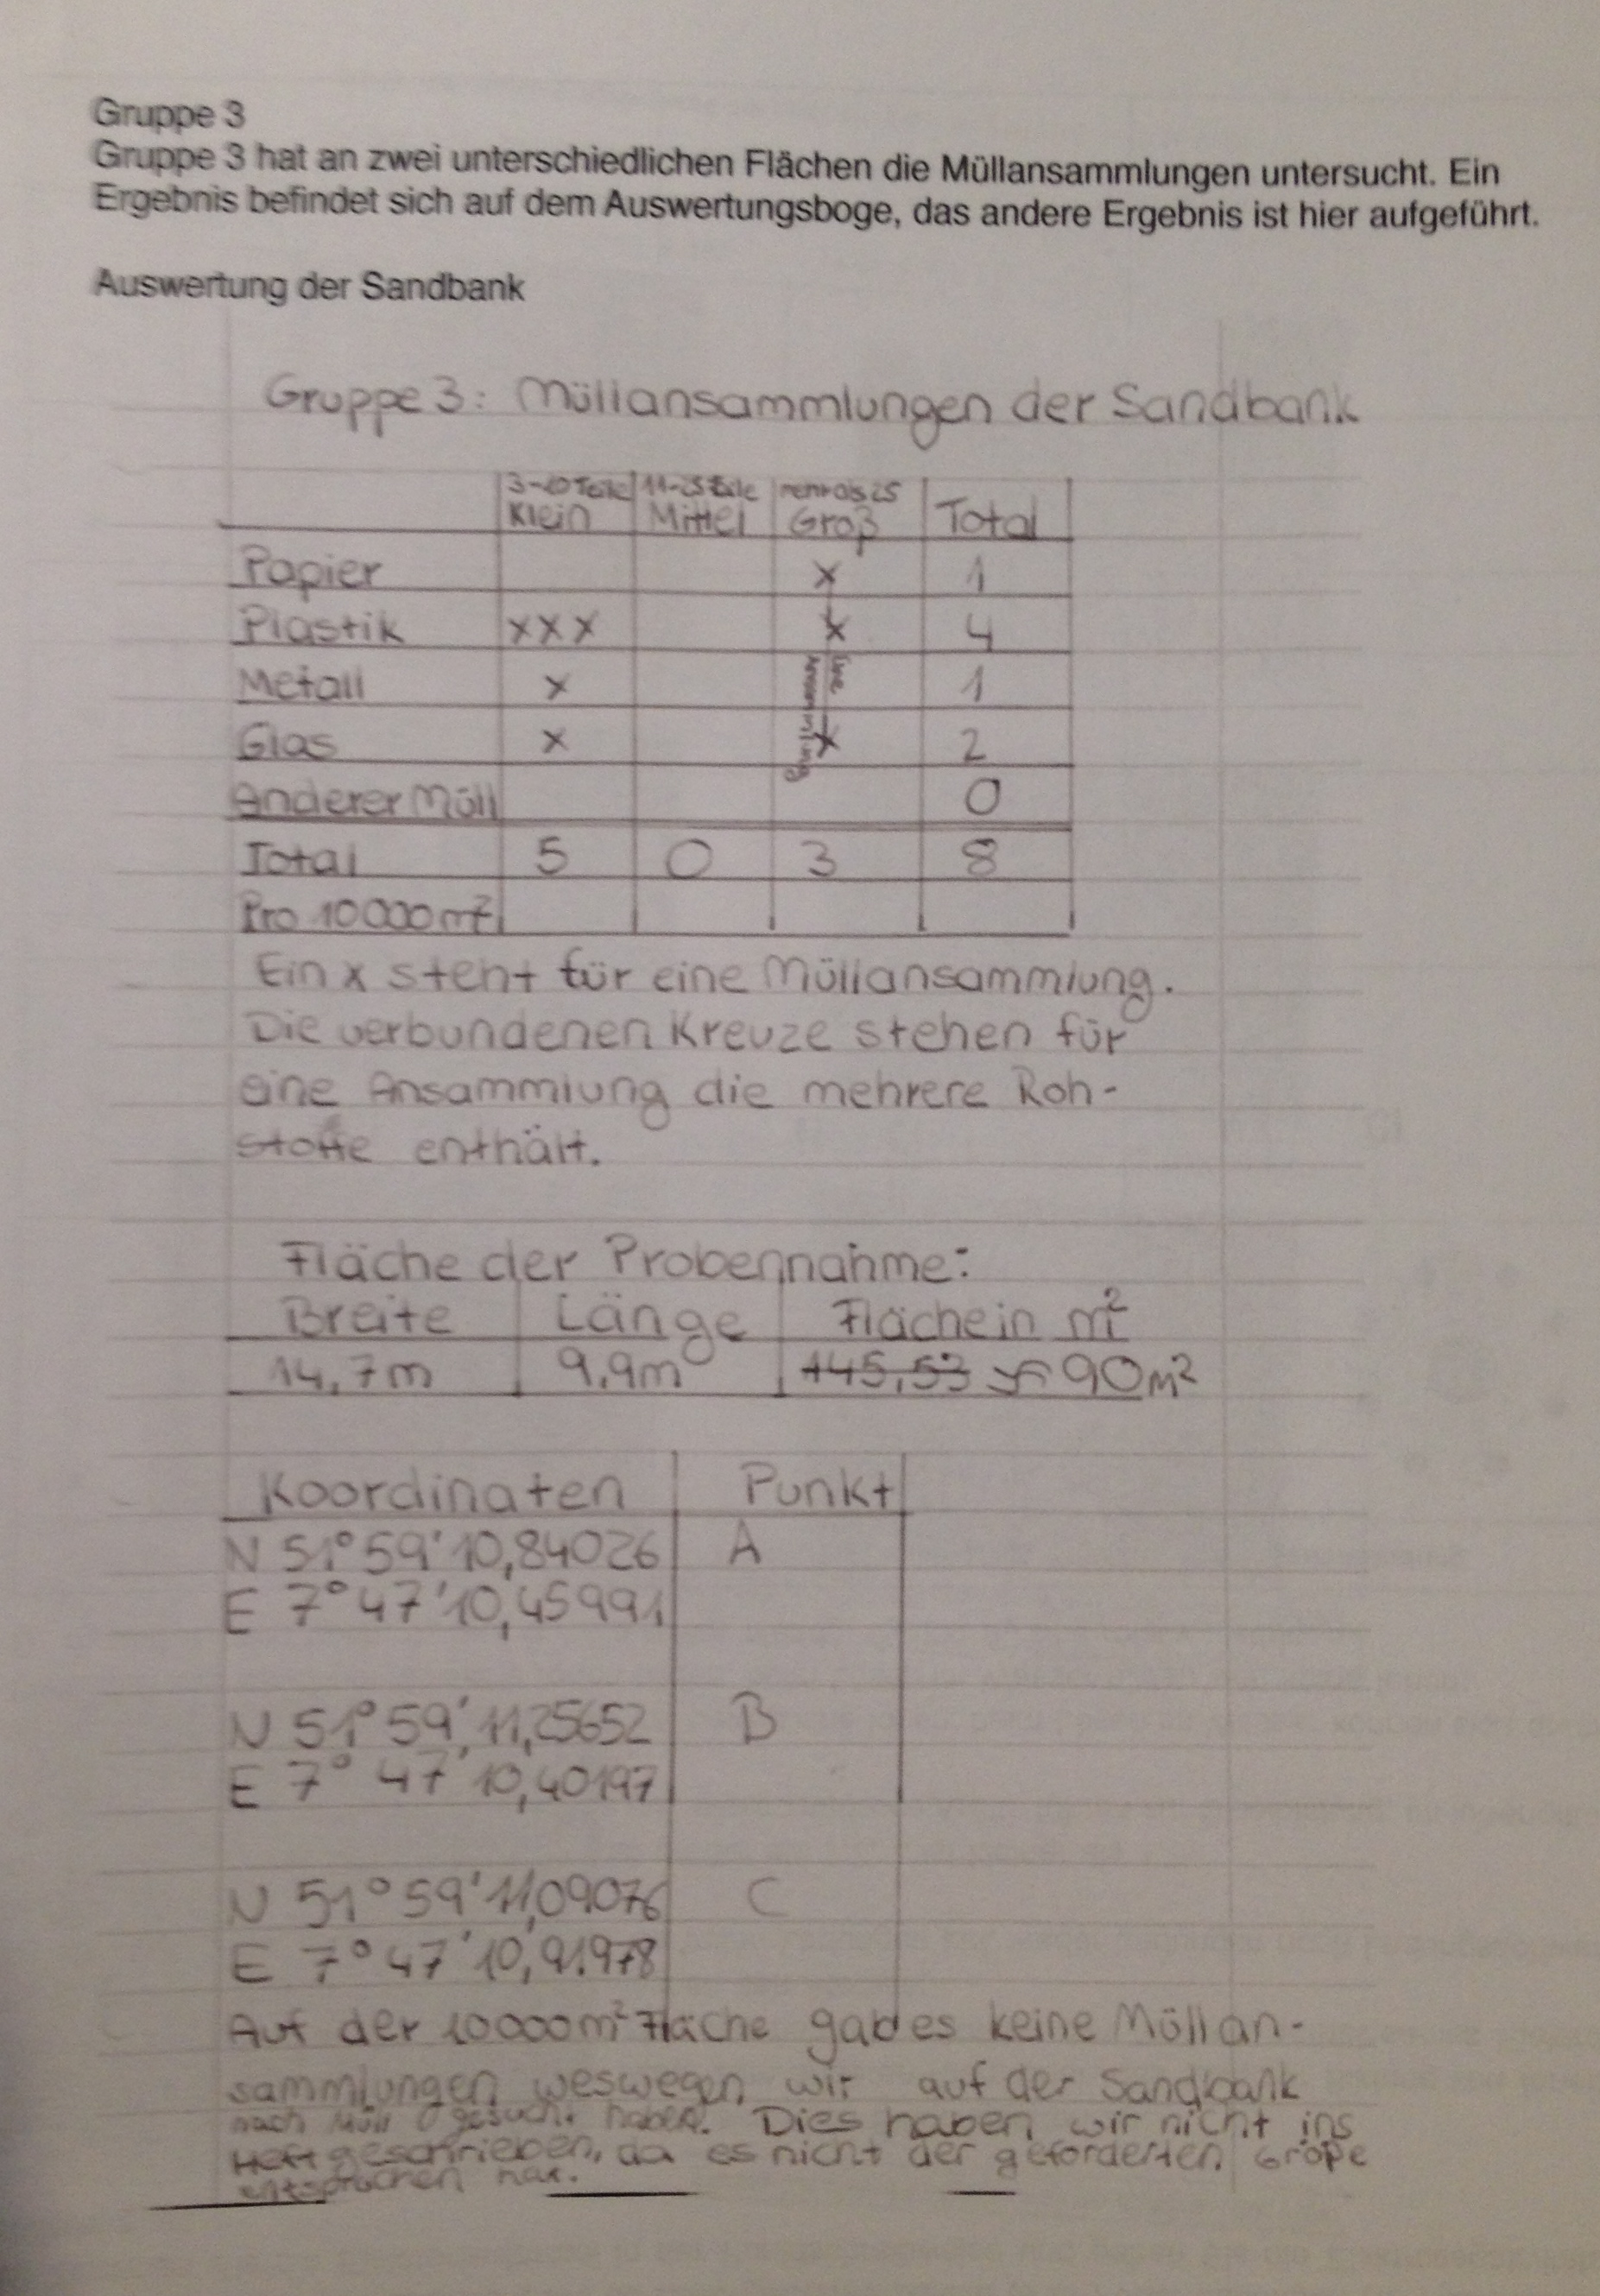 Gruppe 3
Gruppe 3 hat an zwei unterschiedlichen Flächen die Müllansammlungen untersucht. Ein
Ergebnis befindet sich auf dem Auswertungsboge, das andere Ergebnis ist hier aufgeführt.
Auswertung der Sandbank
Gruppe 3: Müllansammlungen der Sandbank
3-10 Teile 11-25 Teile mehr als 25
Klein Mittel Groß Total
Papier x 1
Plastik xxx x 4
Metall x 1
Glas x x 2
eine
Ansammlung
Anderer Müll 0
Total 5 0 3 8
Pro 10000m²
Ein x steht für eine Müllansammlung.
Die verbundenen Kreuze stehen für
eine Ansammlung die mehrere Roh-
stoffe enthält.
Fläche der Probennahme:
Breite Länge Fläche in m²
14,7m 9,9m 145,53 90m²
Koordinaten Punkt
N 51° 59' 10,84026 A
E 7° 47' 10,45991
N 51° 59' 11,25652 B
E 7° 47' 10,40197
N 51° 59' 11,09076 C
E 7° 47' 10,91978
Auf der 10000m² Fläche gab es keine Müllan-
sammlungen weswegen wir auf der Sandbank
nach Müll gesucht haben. Dies haben wir nicht ins
Heft geschrieben, da es nicht der geforderten Größe
entsprochen hat.